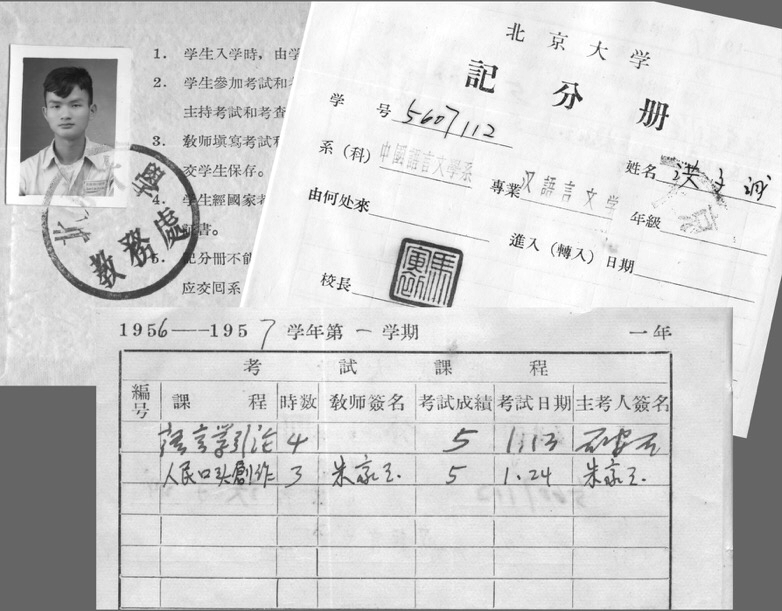 1. 学生入学時，由学
2. 学生參加考試和考
主持考試和考查
3. 敎师塡寫考試和
交学生保存。
4. 学生經國家考
証書。
5. 記分册不能
应交囘系
敎務處
北京大学
記分册
学号 5607112
姓名 洪子诚
系（科） 中國語言文學系
專業 汉語言文学
年級
由何处來
進入（轉入）日期
校長
馬寅初
1956——1957学年第一学期 一年
考試課程
編号 課程 時数 敎师簽名 考試成績 考試日期 主考人簽名
語言學引论 4 5 1.13
人民口头創作 3 朱家玉 5 1.24 朱家玉